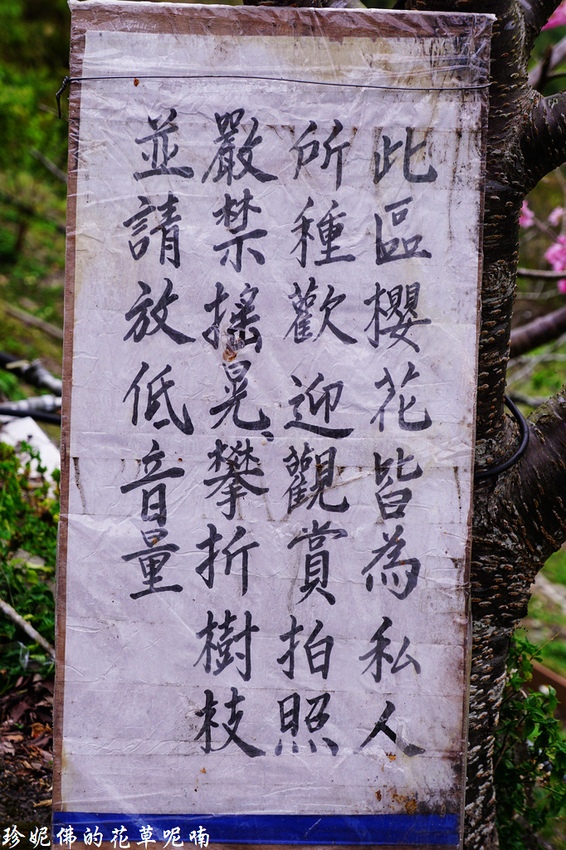 此區櫻花皆為私人
所種歡迎觀賞拍照
嚴禁搖晃、攀折樹枝
並請放低音量
珍妮佛的花草呢喃